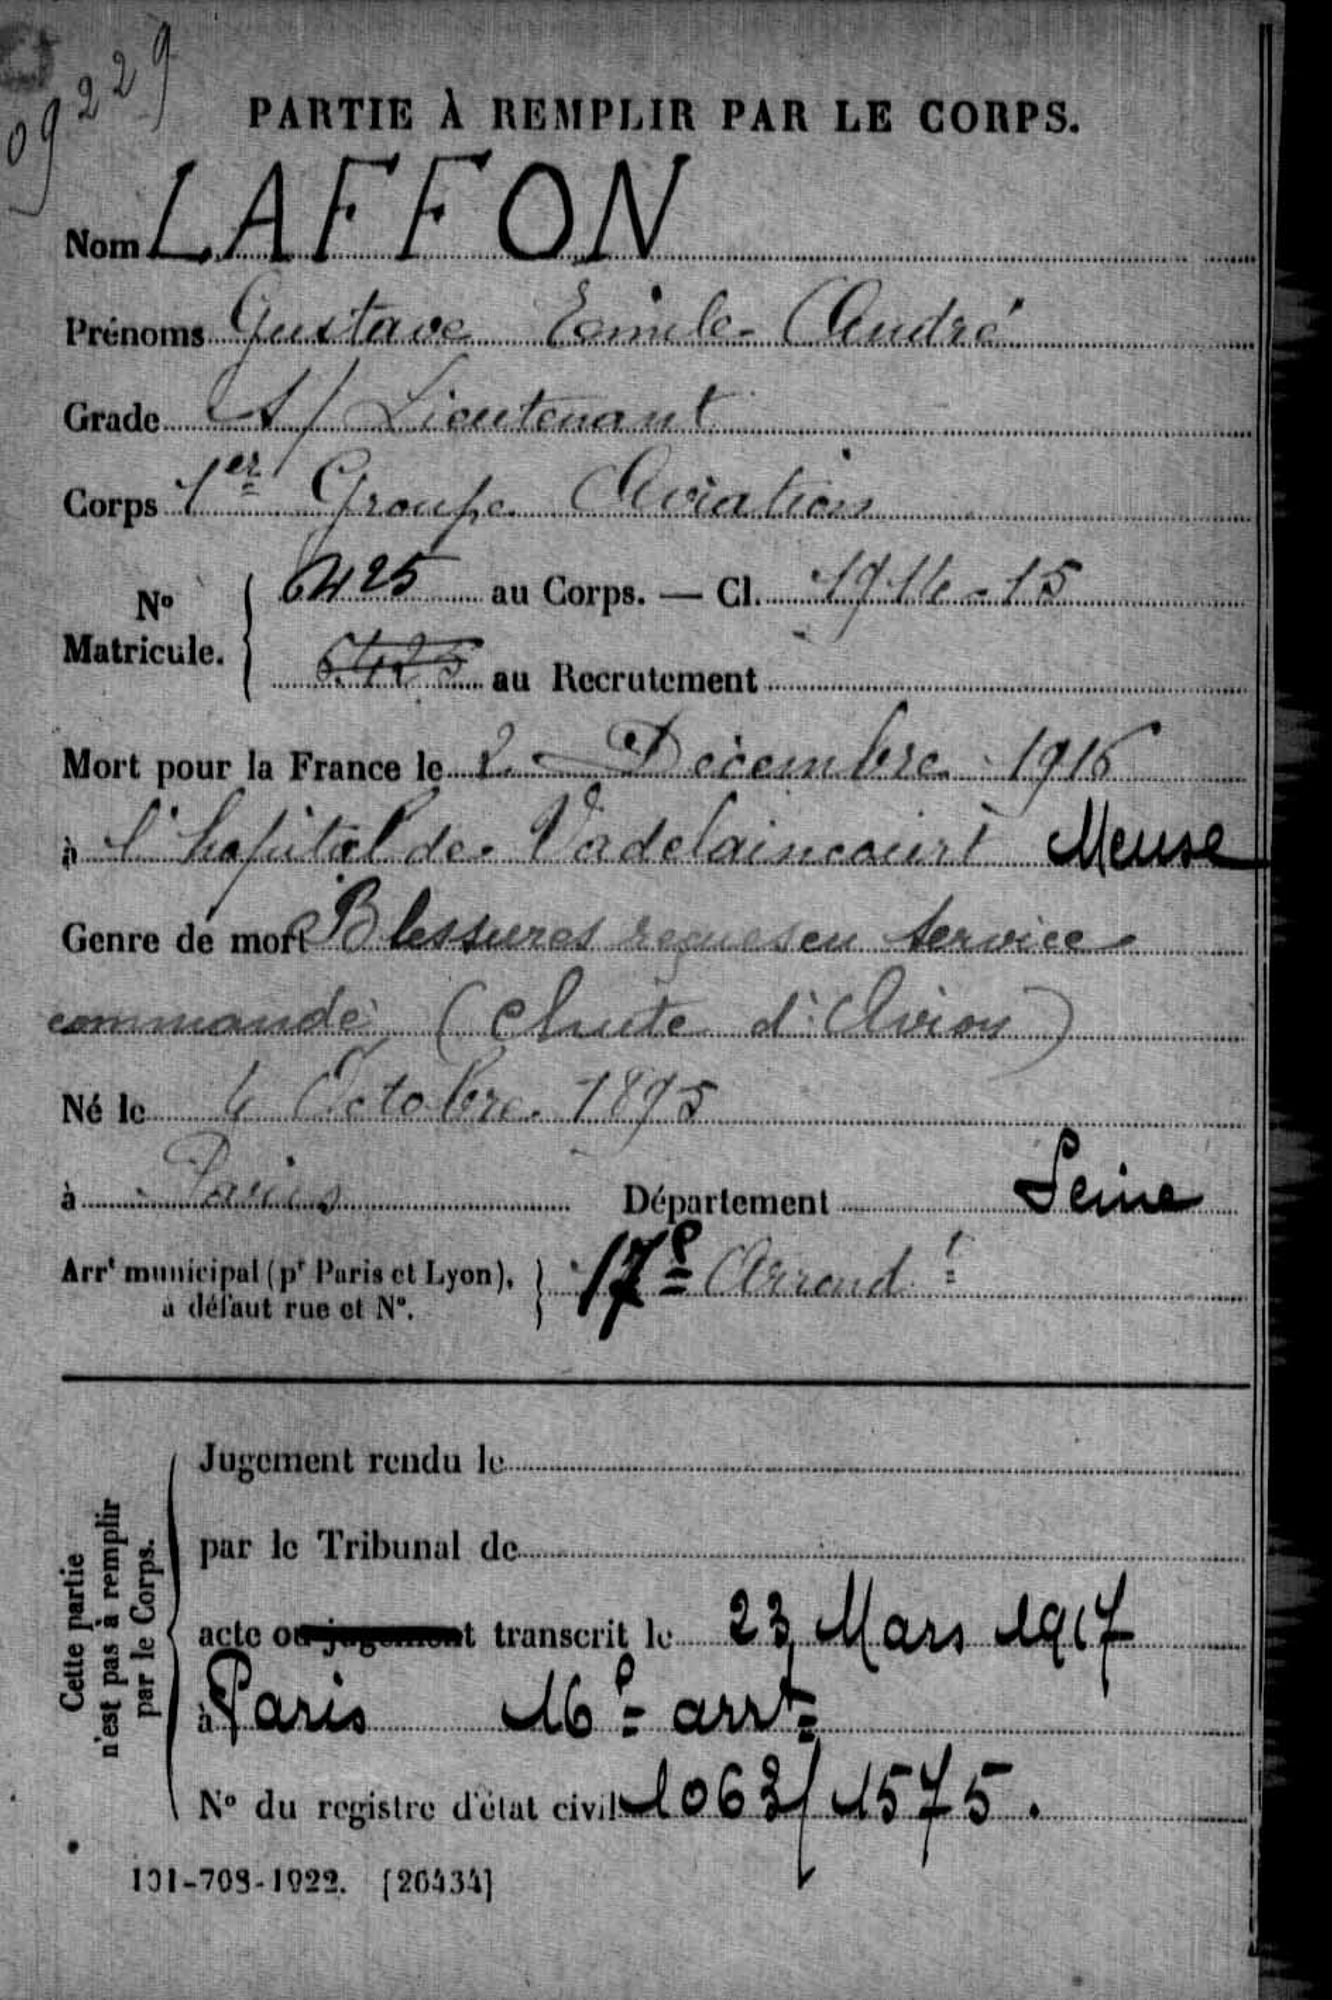 09229
PARTIE À REMPLIR PAR LE CORPS.
Nom LAFFON
Prénoms Gustave Emile André
Grade S/Lieutenant
Corps 1er Groupe Aviation
No Matricule. 6425 au Corps. — Cl. 1914-15
6425 au Recrutement
Mort pour la France le 2 Décembre 1916
à l'hopital de Vadelaincourt Meuse
Genre de mort Blessures reçues en service
commandé (chute d'Avion)
Né le 4 Octobre 1895
à Paris Département Seine
Arrt municipal (pr Paris et Lyon), 17e Arrondt
à défaut rue et No.
Cette partie
n'est pas à remplir
par le Corps.
Jugement rendu le
par le Tribunal de
acte ou jugement transcrit le 23 Mars 1917
à Paris 16e arrt
No du registre d'état civil 1063/1575.
101-708-1922. [26434]